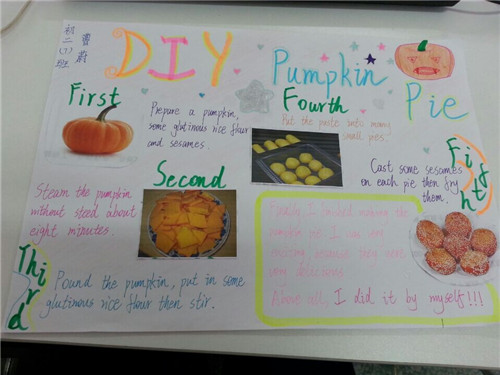 初二(7)班
DIY
Pumpkin
Pie
First
Prepare a pumpkin,
some glutinous rice flour
and sesames.
Second
Steam the pumpkin
without steed about
eight minutes.
Third
Pound the pumpkin, put in some
glutinous rice flour then stir.
Fourth
Put the paste into many
small pies.
Fifth
Cast some sesames
on each pie then fry
them.
Finally, I finished making the
pumpkin pie. I am very
because they were
very delicious.
Above all, I did it by myself!!!